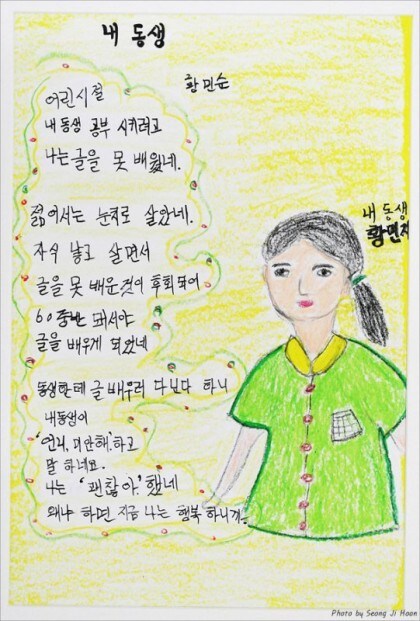 내 동생
황민순
어린시절
내 동생 공부 시키려고
나는 글을 못 배웠네.
젊어서는 눈치로 살았네.
자식 낳고 살면서
글을 못 배운것이 후회되어
60 중반 돼서야
글을 배우게 되었네
동생한테 글 배우러 다닌다 하니
내동생이
'언니, 미안해.'하고
말 하네요.
나는 '괜찮아.'했네
왜냐 하면 지금 나는 행복 하니까.
내 동생
Photo by Seong Ji Hoon